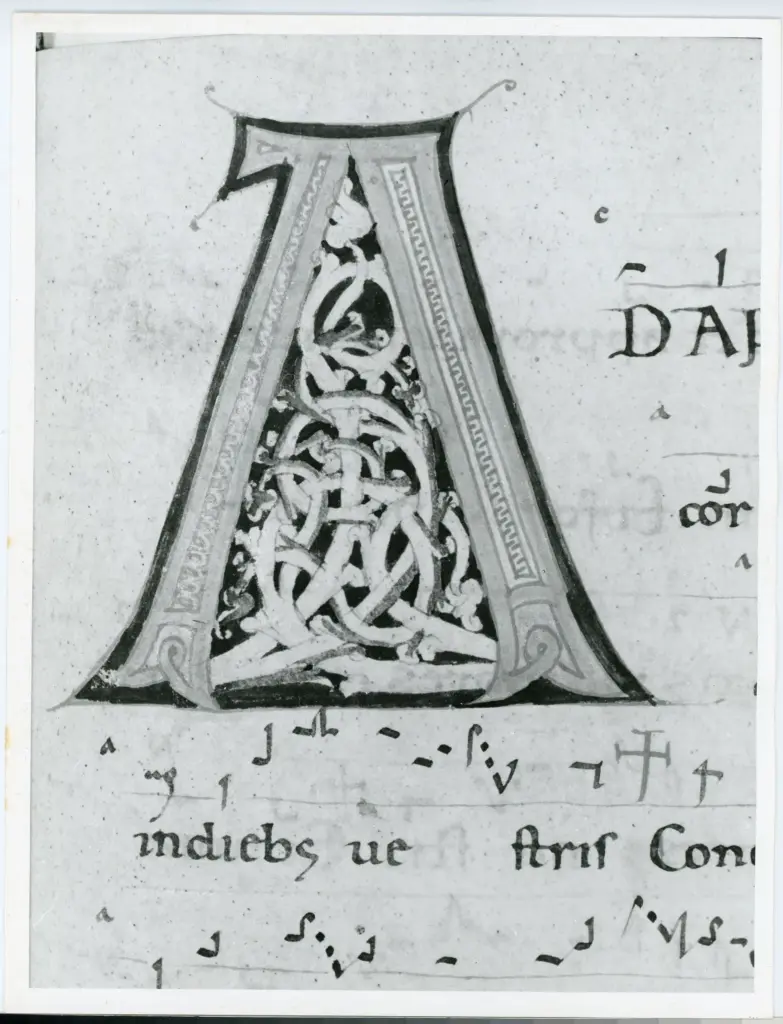 A
DAP
cōr
indiebꝫ ue ſtriſ Con